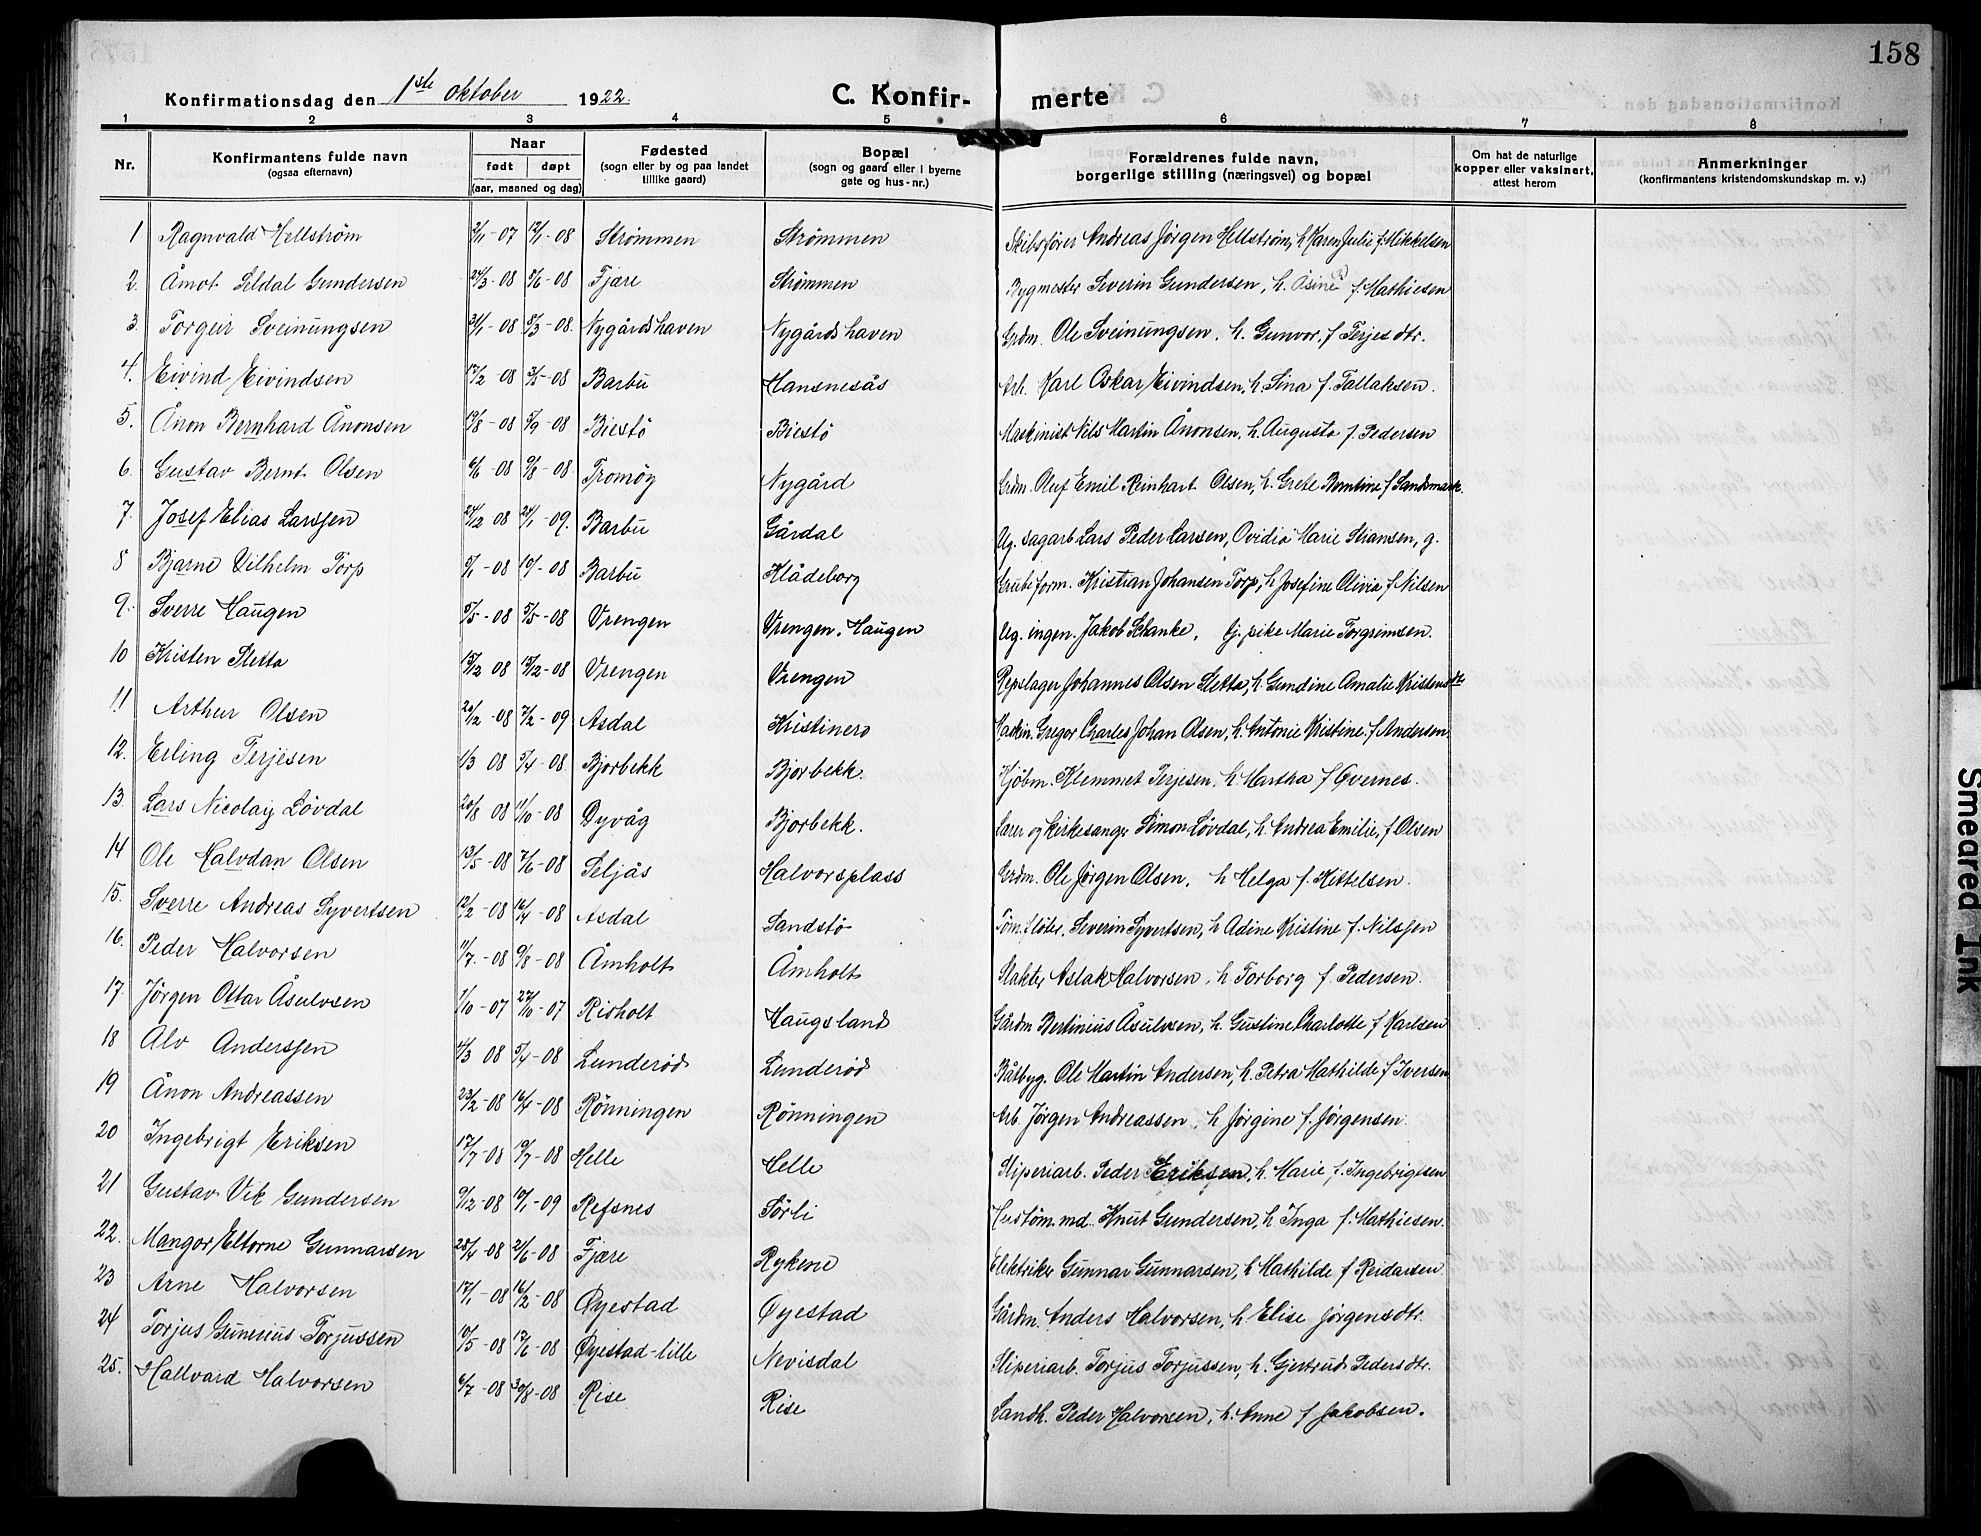 158
Konfirmationsdag den 1ste oktober 1922. C. Konfir- merte
1 2 3 4 5 6 7 8
Nr. Konfirmantens fulde navn (ogsaa efternavn) Naar født døpt (aar, maaned og dag) Fødested (sogn eller by og paa landet tillike gaard) Bopæl (sogn og gaard eller i byerne gate og hus-nr.) Forældrenes fulde navn, borgerlige stilling (næringsvei) og bopæl Om hat de naturlige kopper eller vaksinert, attest herom Anmerkninger (konfirmantens kristendomskundskap m. v.)
1 Ragnvald Hellstrøm 2/11-07 12/1-08 Strømmen Strømmen Skibsfører Andreas Jørgen Hellstrøm, h. Karen Julie f. Mikkelsen
2. Åmot Seldal Gundersen 24/3-08 5/6-08 Fjære Strømmen Bygmester Severin Gundersen, h. Åsine f. Mathiesen
3. Torgeir Sveinungsen 31/1-08 8/3-08. Nygårdshaven Nygårdshaven Grdm. Ole Sveinungsen, h. Gunvor, f Terjesdtr.
4. Eivind Eivindsen 17/2 08 3/5-08 Barbu Hansnesås Arb. Karl Oskar Eivindsen, h. Sina f. Tallaksen.
5. Ånon Bernhard Ånonsen 19/8-08 5/9-08 Biestö Biestö Maskinist Nils Martin Ånonsen, h. Augusta f. Pedersen
6. Gustav Bernt Olsen 6/6-08 9/8-08 Tromöy Nygård Grdm. Oluf Emil Reinhart Olsen, h. Grete Berntine f Sandsmark.
7. Josef Elias Larssen 24/12 08 24/1-09. Barbu Gårdal Ug. sagarb Lars Peder Larsen, Ovidia Marie Stiansen, g.
8 Bjarne Vilhelm Torp 5/1-08 10/1-08 Barbu Klådeborg Grubeform. Kristian Johansen Torp, h Josefine Olivia f Nilsen
9. Sverre Haugen 5/5-08 5/5-08 Vrengen Vrengen, Haugen Ug. ingen. Jakob Schanke, tj. pike Marie Torgrimsen.
10 Kristen Sletta 15/12 08 15/12-08 Vrengen Vrengen Repslager Johannes Olsen Sletta, h. Gundine Amalie Kristensdtr
11 Arthur Olsen 20/12-08 7/2-09 Asdal Kristinero Maskin. Gregor Charles Johan Olsen, h. Antonie Kristine f Andersen
12. Erling Terjesen 1/3 08 5/4-08 Bjorbekk Bjorbekk. Kjöbm. Klemmet Terjesen, h. Martha f Overnes.
13. Lars Nicolay Lövdal 20/8 08 11/10-08 Dyvåg Bjorbekk. Lærer og kirkesanger Simon Lövdal, h. Andrea Emilie, f. Olsen
14 Ole Halvdan Olsen 13/5-08 7/6-08 Seljås Halvorsplass Grdm. Ole Jörgen Olsen, h Helga f. Kittelsen.
15. Sverre Andreas Syvertsen 12/2-08 16/4-08 Asdal Sandstö Töm.fløter. Severin Syvertsen, h Adine Kristine f. Nilssen
16. Peder Halvorsen 11/7-08 9/8-08 Åmholt Åmholt Slakter Aslak Halvorsen, h Torborg f. Pedersen.
17. Jörgen Ottar Åsulvsen 1/10-07 27/10-07 Risholt Haugsland Gårdm Bertinius Åsulvsen, h. Gustine Charlotte f Karlsen
18 Alv Anderssen 4/3 08 5/4-08 Lunderöd Lunderöd Båtbyg. Ole Martin Andersen, h. Petra Mathilde f Iversen
19 Ånon Andreassen 23/2-08 16/4-08 Rönningen Rönningen Arb Jörgen Andreassen, h Jörgine f. Jörgensen.
20 Ingebrigt Eriksen 17/7-08 19/7-08 Helle Helle Sliperiarb. Peder Eriksen, h. Marie f. Ingebrigtsen
21 Gustav Vik Gundersen 9/12-08 10/1-09 Refsnes Sörli Hustöm.md. Knut Gundersen, h Inga f. Mathiesen.
22. Mangor Eltorne Gunnarsen 28/4-08 21/6-08 Fjære Rykene Elektriker Gunnar Gunnarsen, h Mathilde f Reidarsen
23 Arne Halvorsen 17/1-08 16/2-08 Øyestad Øyestad Gårdm. Anders Halvorsen, h Elise Jörgensdtr.
24 Torjus Gunerius Torjussen 10/5-08 17/6-08 Øyestad-lille Nevisdal Sliperiarb. Torjus Torjussen, h. Gjertrud Pedersdtr.
25. Hallvard Halvorsen 6/7-08 30/8-08 Rise Rise Sandh. Peder Halvorsen, h. Anne f Jakobsen.
Smeared Ink